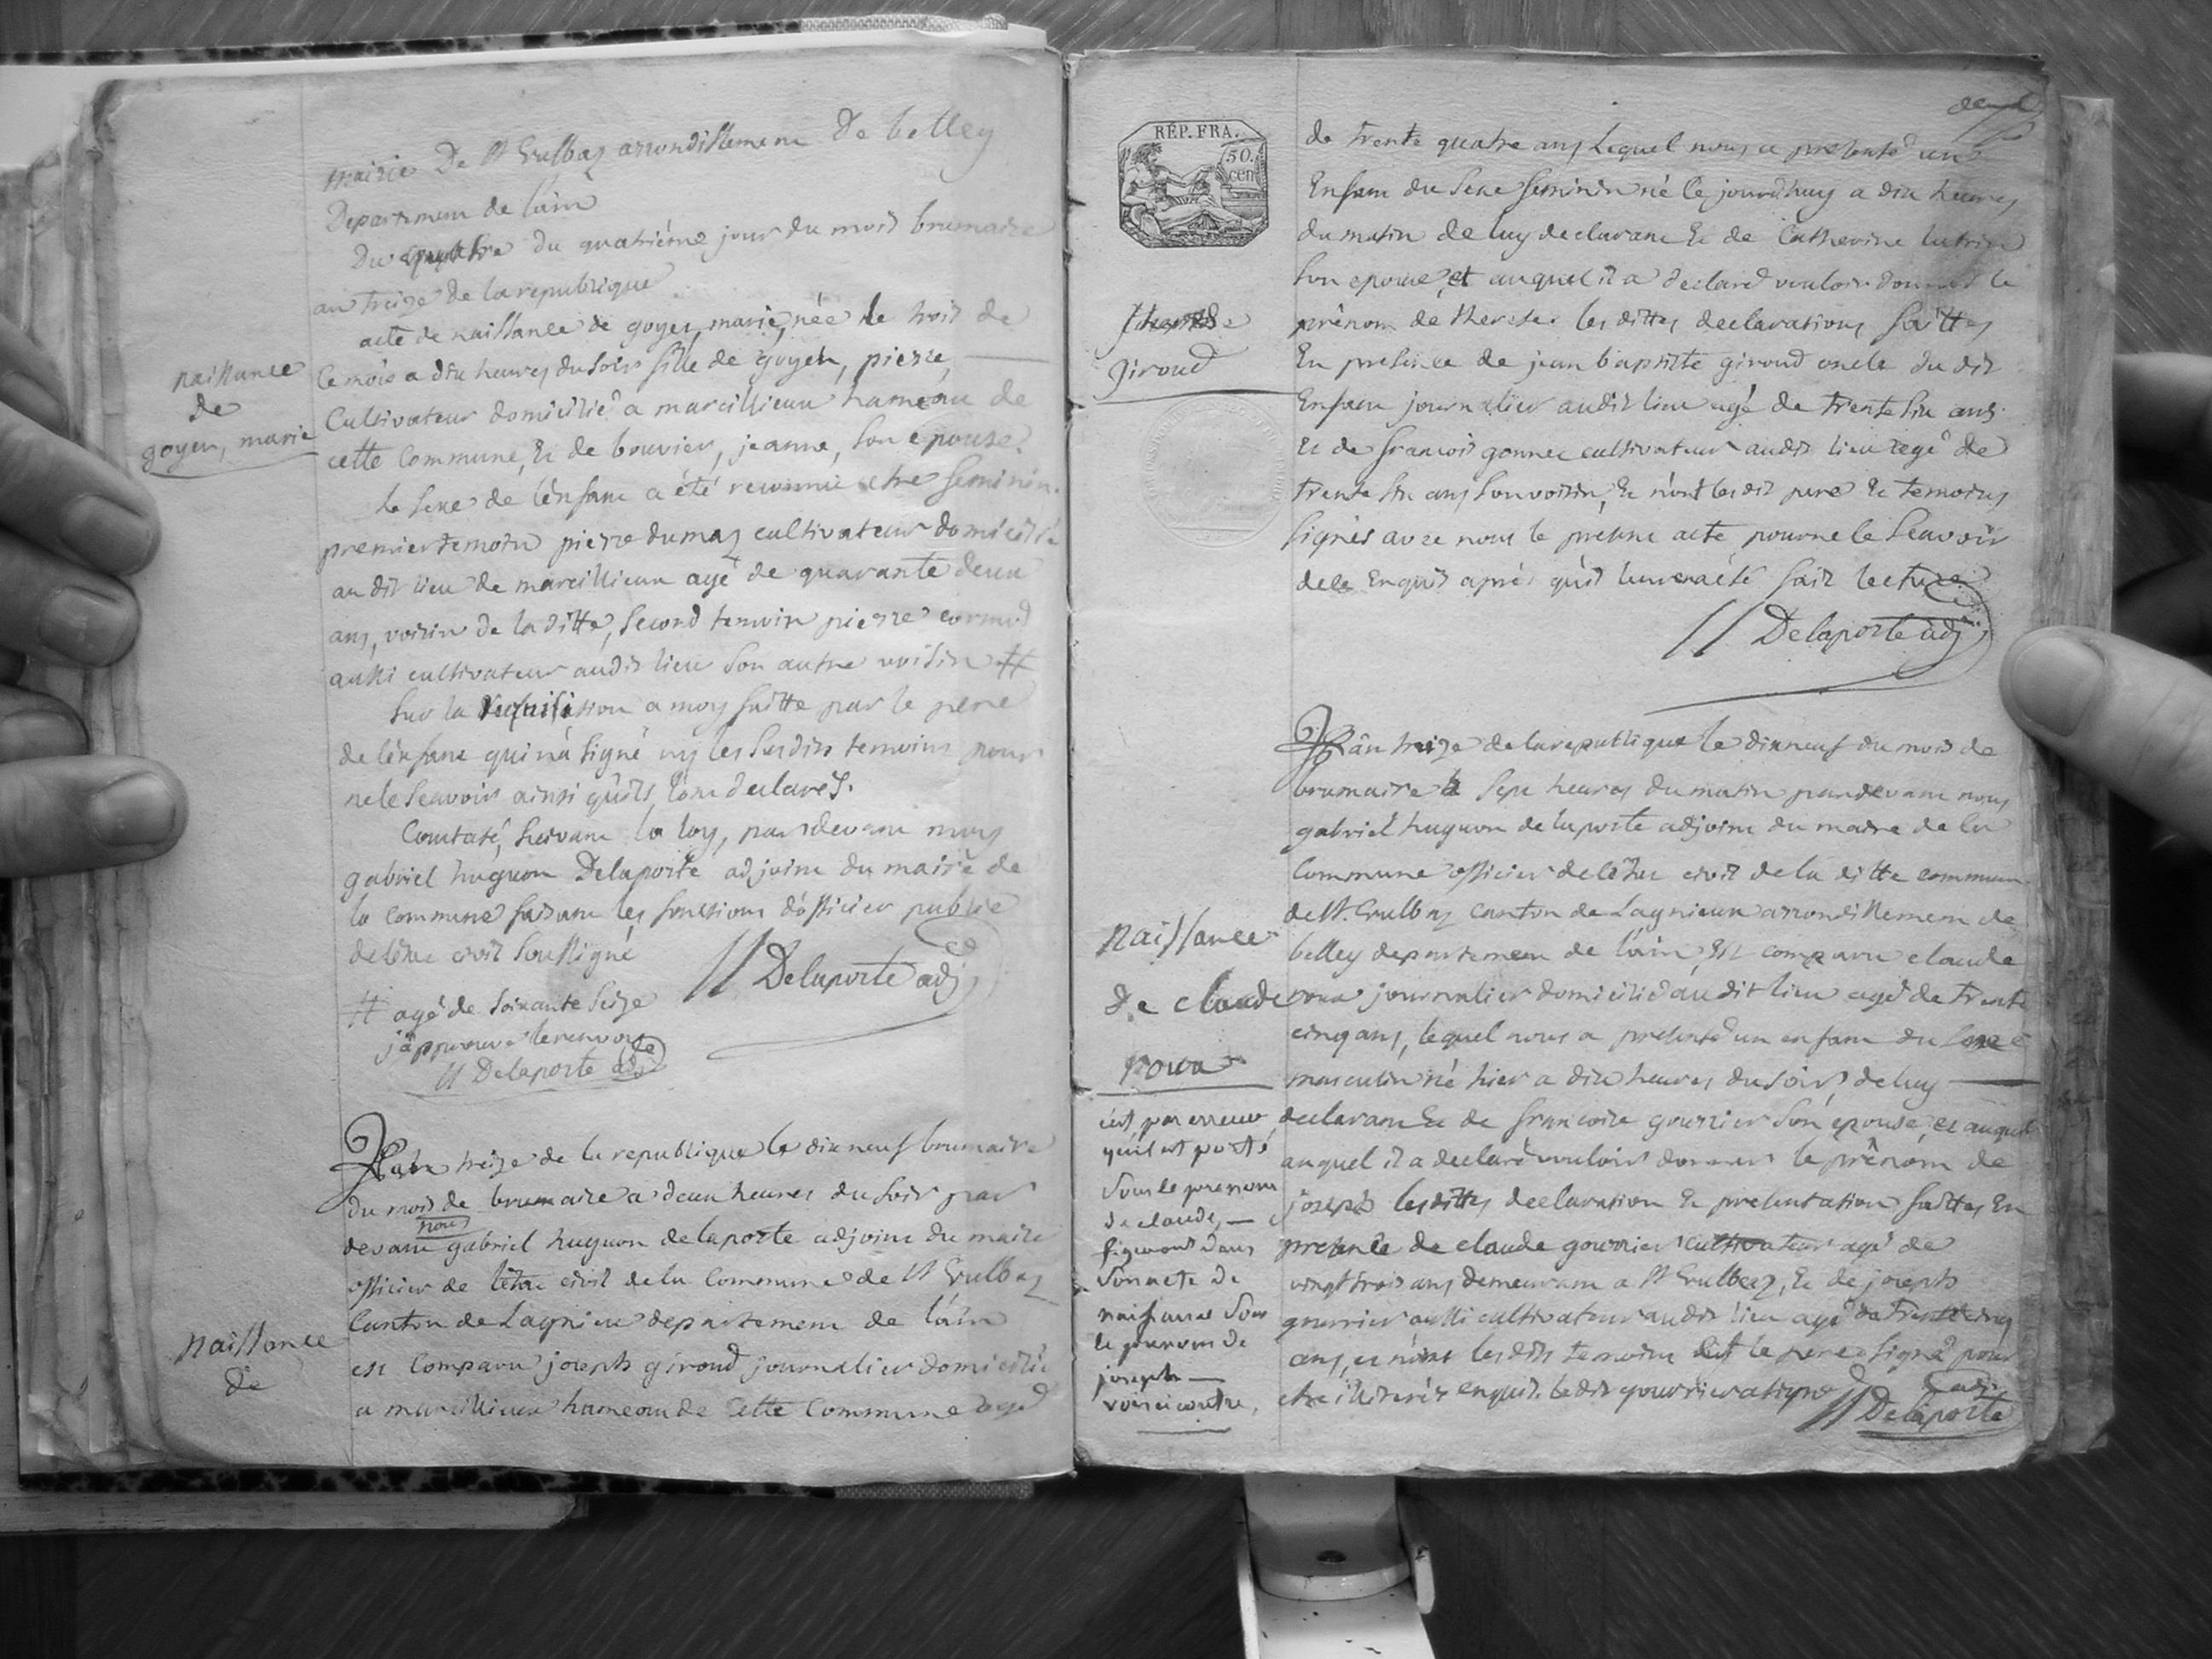 mairie De St Trulbas arrondissement De belley
Departement de lain
Du quatre du quatriéme jour du mois brumaire
an treize de la republique
acte de naissance de goyer, marie, née le trois de
ce mois a dix heures du soir fille de goyer, pierre,
Cultivateur domicilié a marcillieux hameau de
cette Commune, Et de bouvier, jeanne, Son epouse.
le Sexe de lenfant a été reconnu etre feminin.
premier temoin pierre dumas cultivateur domicilié
au dit lieu de marcillieux agé de quarante deux
ans, voisin de la ditte, Second temoin pierre
aussi cultivateur audit lieu Son autre voisin #
Sur la requisition a moy faitte par le pere
de lenfant qui n'a signé ny les susdits temoins pour
ne le Scavoir ainsi qu'ils l'ont declarés.
Constaté, Suivant la loy, pardevant nous
gabriel huguon Delaporte adjoint du maire de
la Commune faisant les fonctions d'officier public
de l'état civil Soussigné
Delaporte adj
# agé de Soixante Seize
j'approuve le renvoy
Delaporte adj
naissance
de
goyer, marie
L'an treize de la republique le dix neuf brumaire
du mois de brumaire a deux heures du soir par
devant nous gabriel huguon delaporte adjoint du maire
officier de l'état civil de la Commune de St Trulbas
Canton de Lagnieu departement de l'ain
est Comparu joseph giroud journalier domicilié
a marcillieux hameau de Cette Commune agé
naissance
de
RÉP. FRA.
50.
cent
de trente quatre ans Lequel nous a presenté un
Enfant du Sexe feminin né cejourdhuy a dix heures
du matin de luy declarant Et de Catherine
Son epouse, et auquel il a declaré vouloir donner le
prénom de therese. les dittes declarations faittes
En presence de jean baptiste giroud oncle du dit
Enfant journalier audit lieu agé de trente six ans
Et de francois gonnet cultivateur audit lieu agé de
trente six ans Son voisin, Et n'ont les dit pere Et temoins
Signés avec nous le present acte, pour ne le Scavoir
de ce Enquis aprés qu'il leur en a été fait lecture
Delaporte adj
therese
giroud
L'an treize de la republique le dix neuf du mois de
brumaire à Sept heures du matin pardevant nous
gabriel huguon delaporte adjoint du maire de la
Commune officier de l'état civil de la ditte commune
de St. Trulbas Canton de Lagnieux arrondissement de
belley departement de l'ain, Est comparu claude
roux journalier domicilié au dit lieu agé de trente
cinq ans, lequel nous a presenté un enfant du Sexe
masculin né hier a dix heures du soir, de luy
declarant Et de francoise gourrier Son epouse, et auquel
auquel il a declaré vouloir donner le prênom de
joseph les dittes declaration Et presentation faittes En
presence de claude gourrier cultivateur agé de
vingt trois ans demeurant a St Trulbas, Et de joseph
gourrier aussi cultivateur audit lieu agé de trente cinq
ans, et n'ont les dits temoins et le pere signé pour
etre illiterés enquis. le dit gourrier a signé
adj.
Delaporte
naissance
de claude
roux
c'est par erreur
qu'il est porté
Sous le prenom
de claude,
figurant dans
Son acte de
naissance Sous
le prenom de
joseph
voir ci contre.